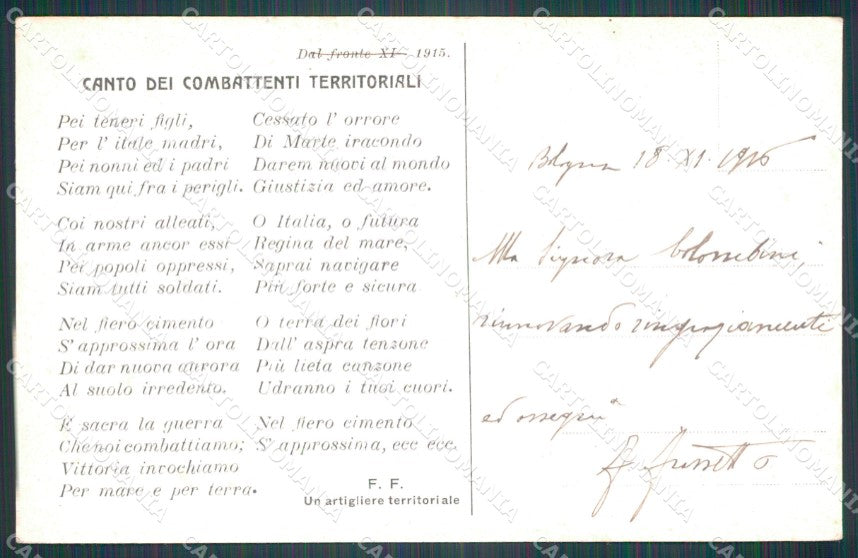 Dal fronte XI 1915.
CANTO DEI COMBATTENTI TERRITORIALI
Pei teneri figli,
Per l' itale madri,
Pei nonni ed i padri
Siam qui fra i perigli.
Coi nostri alleati,
In arme ancor essi
Pei popoli oppressi,
Siam tutti soldati.
Nel fiero cimento
S' approssima l' ora
Di dar nuova aurora
Al suolo irredento.
E sacra la guerra
Che noi combattiamo;
Vittoria invochiamo
Per mare e per terra.
Cessato l' orrore
Di Marte iracondo
Darem nuovi al mondo
Giustizia ed amore.
O Italia, o futura
Regina del mare,
Saprai navigare
Più forte e sicura
O terra dei fiori
Dall' aspra tenzone
Più lieta canzone
Udranno i tuoi cuori.
Nel fiero cimento
S' approssima, ecc ecc.
F. F.
Un artigliere territoriale
Bologna 18 XI. 1915
Alla Signora Colombini
rinnovando ringraziamenti
ed ossequi
CARTOLINOMANIA